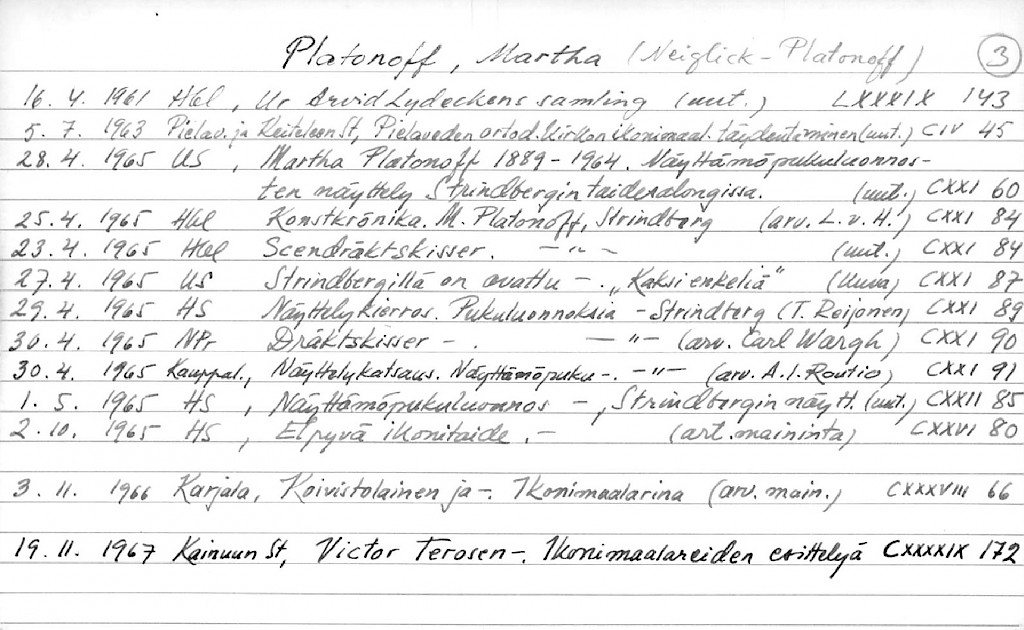 Platonoff, Martha (Neiglick-Platonoff) 3
16. 4. 1961 Hbl, Ur Arvid Lydeckens samling (uut.) LXXXIX 143
5. 7. 1963 Pielav. ja Keiteleen St, Pielaveden ortod. kirkon ikonimaal. täydentäminen (uut.) CIV 45
28. 4. 1965 US, Martha Platonoff 1889-1964. Näyttämöpukuluonnos-
ten näyttely Strindbergin taidesalongissa. (uut.) CXXI 60
25. 4. 1965 Hbl Konstkrönika. M. Platonoff, Strindberg (arv. L.v.H.) CXXI 84
23. 4. 1965 Hbl Scendräktskisser. -"- (uut.) CXXI 84
27. 4. 1965 US Strindbergillä on avattu -. "Kaksi enkeliä" (kuva) CXXI 87
29. 4. 1965 HS Näyttelykierros. Pukuluonnoksia - Strindberg (T. Reijonen) CXXI 89
30. 4. 1965 NPr Dräktskisser -. -"- (arv. Carl Wargh) CXXI 90
30. 4. 1965 Kauppal., Näyttelykatsaus. Näyttämöpuku-. -"- (arv. A.I. Routio) CXXI 91
1. 5. 1965 HS, Näyttämöpukuluonnos -, Strindbergin näytt. (uut.) CXXII 85
2. 10. 1965 HS, Elpyvä ikonitaide. - (art. maininta) CXXVI 80
3. 11. 1966 Karjala, Koivistolainen ja -. Ikonimaalarina (arv. main.) CXXXVIII 66
19. 11. 1967 Kainuun St, Victor Terosen -. Ikonimaalareiden esittelyä CXXXXIX 172